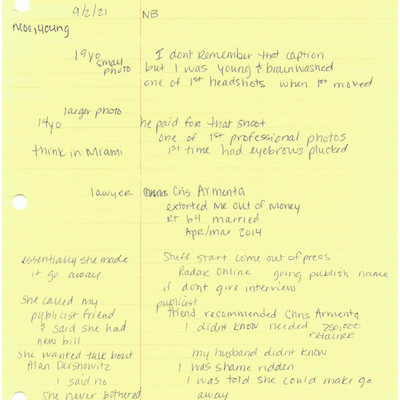 9/2/21 NB
young
19yo I dont remember that caption
small photo but I was young & brainwashed
one of 1st headshots when 1st moved
larger photo
14yo he paid for that shoot
one of 1st professional photos
think in Miami 1st time had eyebrows plucked
lawyer Cris Armenta
extorted me out of money
Rt b4 married
Apr/Mar 2014
essentially she made Stuff start come out of press
it go away Radar Online going publish name
if dont give interview
She called my publicist
publicist friend friend recommended Chris Armenta
& said she had I didnt know needed 250,000
new bill retainer
she wanted talk bout my husband didnt know
Alan Dershowitz I was shame ridden
I said no I was told she could make go
she never bothered away